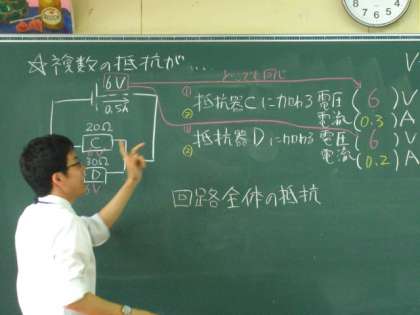 ☆複数の抵抗が…
6V
0.5A
20Ω
C
30Ω
D
どこでも同じ
① 抵抗器Cに加わる電圧(6)V
② 電流(0.3)A
① 抵抗器Dに加わる電圧(6)V
② 電流(0.2)A
回路全体の抵抗
V